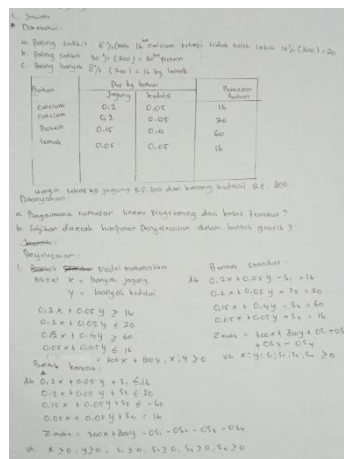 1. Jawab
* Diketahui :
a. Paling sedikit 8% (200) 16 calcium tetapi tidak lebih 10% (200) = 20
b. Paling sedikit 30% (200) = 60 Protein
c. Paling banyak 8% (200) = 16 kg lemak
Bahan
Per kg bahan
Jagung kedelai
bahan
calcium 0,2 0,05 16
calcium 0,2 0,05 20
Protein 0,15 0,4 60
lemak 0,05 0,05 16
Harga kg jagung RP. 300 dan kacang kedelai RP 800
Ditanyakan :
a. Bagaimana rumusan linear Programing dari kasus tersebut ?
b. Sajikan daerah himpunan Penyelesaian dalam bentuk grafik ?
Penyelesaian :
1. Model matematika
Misal x = banyak jagung
y = banyak kedelai
0,2x + 0,05y ≥ 16
0,2x + 0,05y ≤ 20
0,15x + 0,4y ≥ 60
0,05x + 0,05y ≤ 16
= 300x + 800y , x , y ≥ 0
Bentuk standar :
db 0,2x + 0,05y - S1 = 16
0,2x + 0,05y + S2 = 20
0,15x + 0,4y - S3 = 60
0,05x + 0,05y + S4 = 16
Z maks = 300x + 800y + 0S1 + 0S2
+ 0S3 - 0S4
x, y, S1, S2, S3, S4 ≥ 0
Bentuk kanonik :
db 0,2x + 0,05y + S1 ≤ 16
0,2x + 0,05y + S2 ≤ 20
0,15x + 0,4y + S3 ≤ -60
0,05x + 0,05y + S4 = 16
Z maks = 300x + 800y - 0S1 - 0S2 - 0S3 - 0S4
x ≥ 0, y ≥ 0, S1 ≥ 0, S2 ≥ 0, S3 ≥ 0, S4 ≥ 0